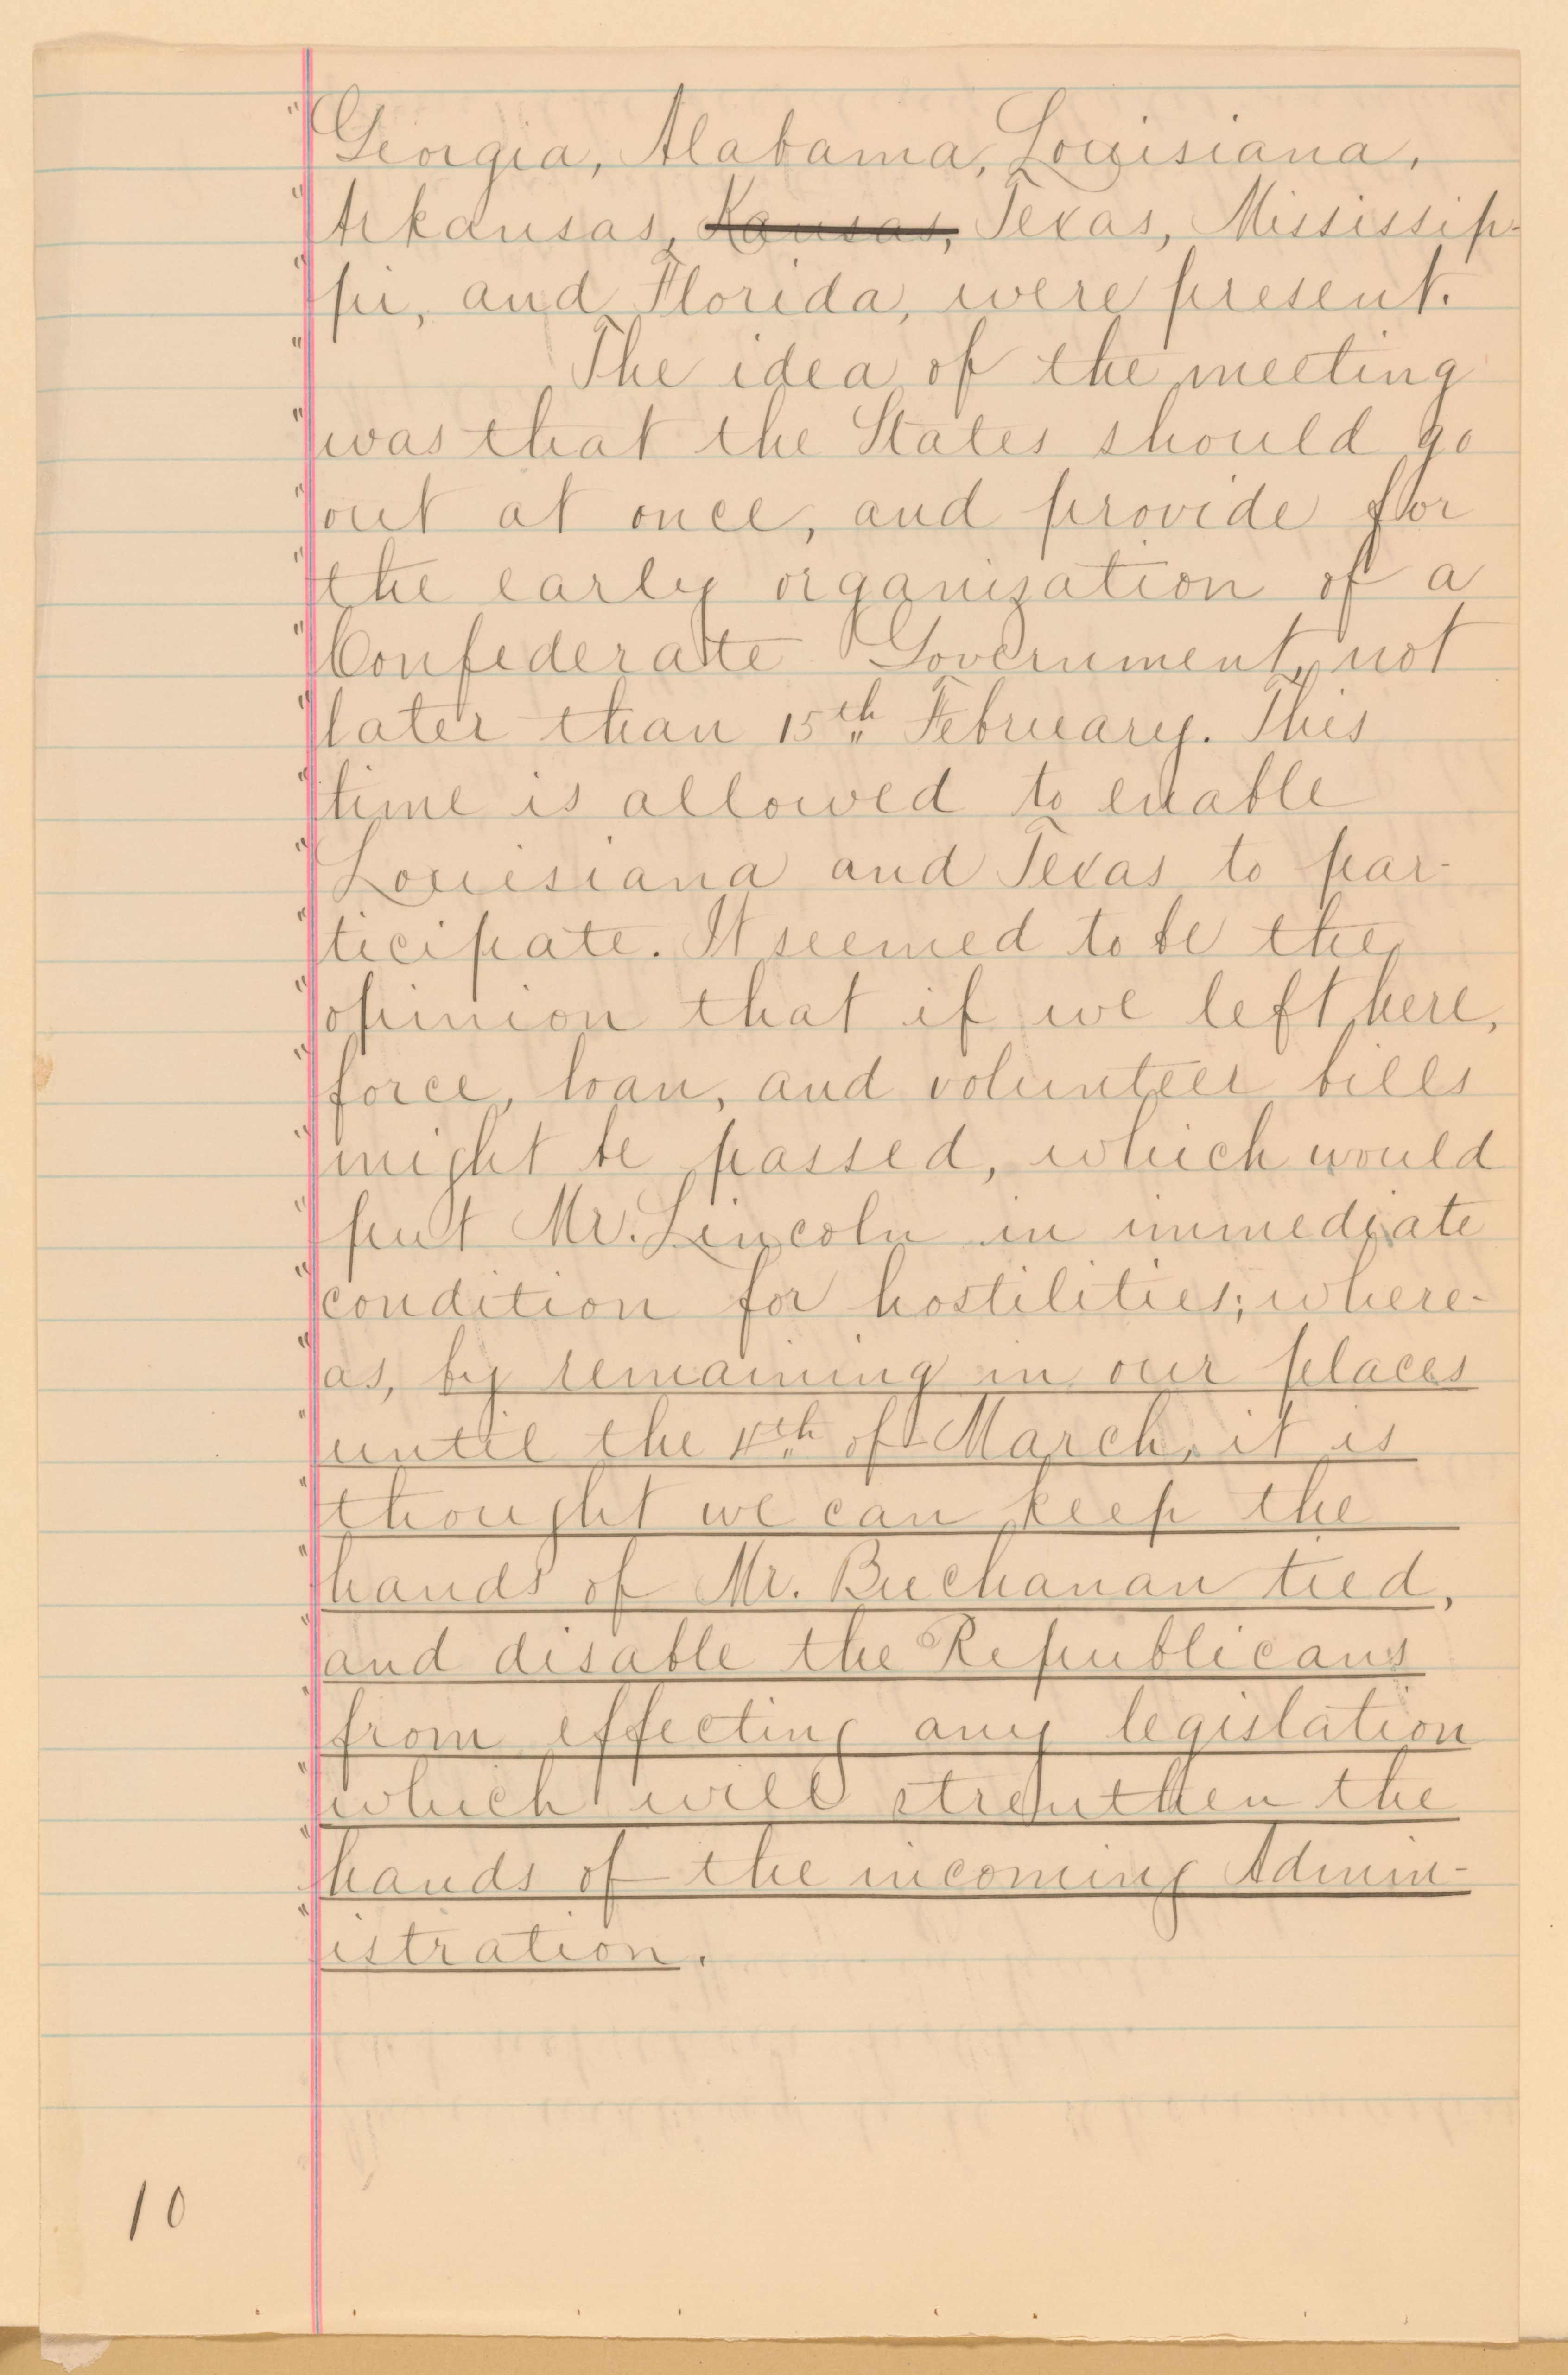 " Georgia, Alabama, Louisiana,
" Arkansas, Kansas, Texas, Mississip-
" pi, and Florida, were present.
" The idea of the meeting
" was that the States should go
" out at once, and provide for
" the early organization of a
" Confederate Government, not
" later than 15th February. This
" time is allowed to enable
" Louisiana and Texas to par-
" ticipate. It seemed to be the
" opinion that if we left here,
" force, loan, and volunteer bills
" might be passed, which would
" put Mr. Lincoln in immediate
" condition for hostilities; where-
" as, by remaining in our places
" until the 4th of March, it is
" thought we can keep the
" hands of Mr. Buchanan tied,
" and disable the Republicans
" from effecting any legislation
" which will strenthen the
" hands of the incoming Admin-
" istration.
10